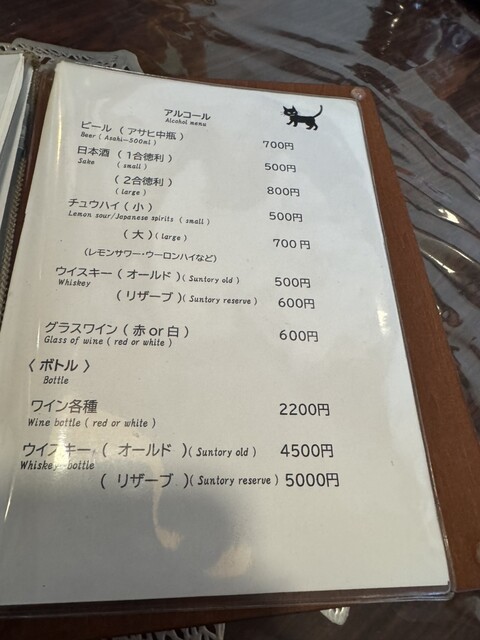 アルコール
Alcohol menu
ビール ( アサヒ中瓶 ) 700円
Beer ( Asahi-500ml )
日本酒 ( 1合徳利 ) 500円
Sake ( small )
( 2合徳利 ) 800円
( large )
チュウハイ ( 小 ) 500円
Lemon sour/Japanese spirits ( small )
( 大 ) ( large ) 700円
(レモンサワー・ウーロンハイなど)
ウイスキー ( オールド ) ( Suntory old ) 500円
Whiskey
( リザーブ ) ( Suntory reserve ) 600円
グラスワイン ( 赤 or 白 ) 600円
Glass of wine ( red or white )
〈 ボトル 〉
Bottle
ワイン各種 2200円
Wine bottle ( red or white )
ウイスキー ( オールド ) ( Suntory old ) 4500円
Whiskey bottle
( リザーブ ) ( Suntory reserve ) 5000円